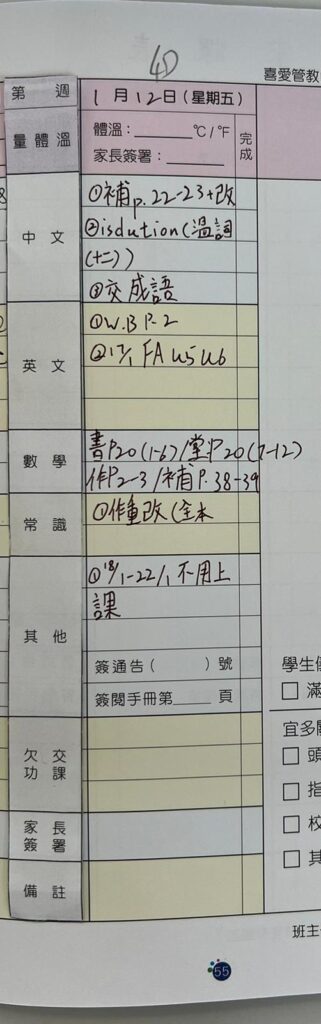 40
喜愛管教
第 週
1月12日(星期五)
量體溫
體溫：______℃/℉
家長簽署：______
完成
中文
①補p.22-23+改
②isdution(溫詞
(十二))
③交成語
英文
①W.B P.2
②17/1 FA U5 U6
數學
書P20(1-6)/堂P20(7-12)
作P2-3/補P.38-39
常識
①作重改(全本
其他
①18/1-22/1不用上
課
簽通告( )號
簽閱手冊第____頁
學生
滿
宜多
頭
指
校
其
欠交功課
家長簽署
備註
班主
55